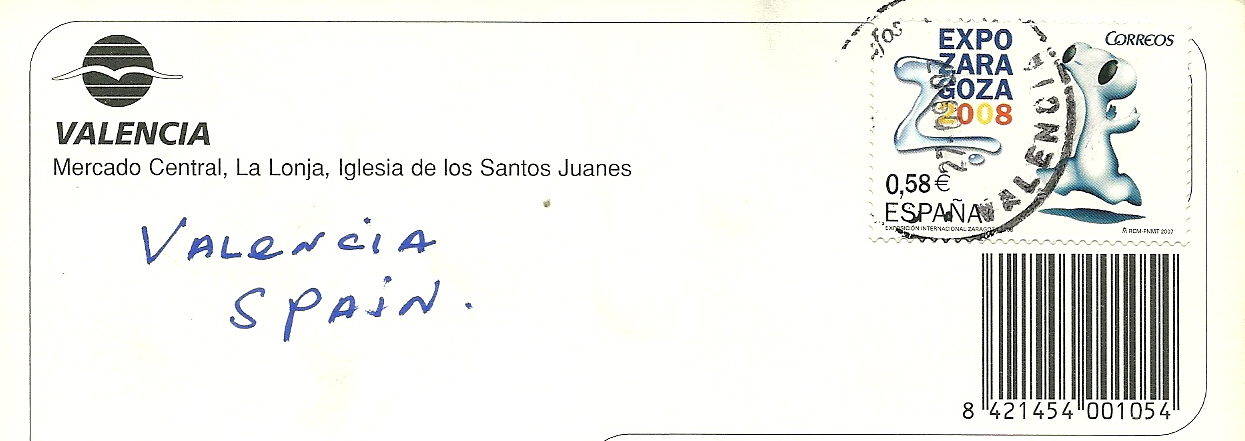 VALENCIA
Mercado Central, La Lonja, Iglesia de los Santos Juanes
VALENCIA
SPAIN.
EXPO
ZARA
GOZA
2008
CORREOS
0,58€
ESPAÑA
EXPOSICIÓN INTERNACIONAL ZARAGOZA 2008
RCM-FNMT 2007
VALENCIA
8 421454 001054